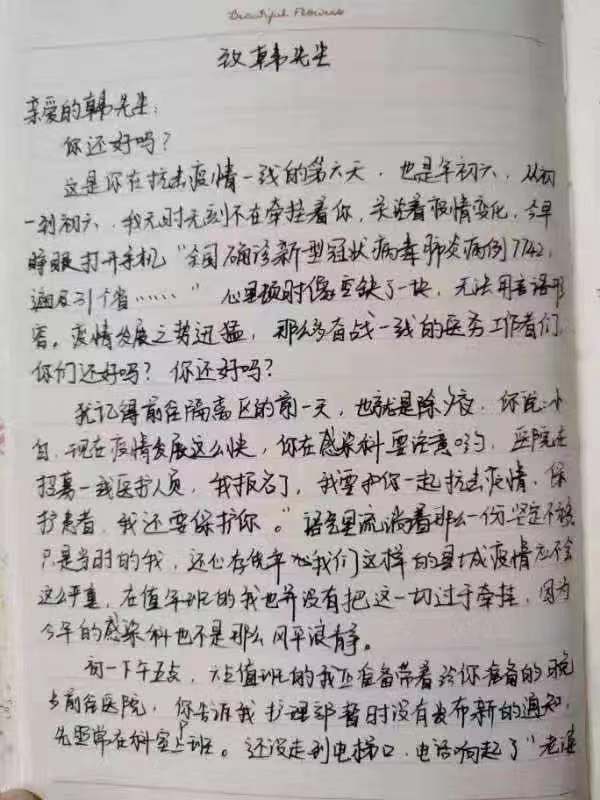 Beautiful Flowers
致韩先生
亲爱的韩先生:
你还好吗?
这是你在抗击疫情一线的第六天,也是年初六,从初
一到初六,我无时无刻不在牵挂着你,关注着疫情变化,今早
睁眼打开手机“全国确诊新型冠状病毒肺炎病例7742,
遍及31个省……”心里顿时像空缺了一块,无法用言语形
容。疫情发展之势迅猛,那么多奋战一线的医务工作者们,
你们还好吗?你还好吗?
我记得前往隔离区的前一天,也就是除夕夜,你说:“小
白,现在疫情发展这么快,你在感染科要注意哟,医院在
招募一线医护人员,我报名了,我要和你一起抗击疫情,保
护患者,我还要保护你。”语气里流淌着那么一份坚定不移
只是当时的我,还心存侥幸 我们这样的县城疫情应不会
这么严重,在值年班的我也并没有把这一切过于牵挂,因为
今年的感染科也不是那么风平浪静。
初一下午五点, 值班的我正准备带着给你准备的晚
前往医院,你告诉我护理部暂时没有发布新的通知,
先照常在科室上班。还没走到电梯口,电话响起了“老婆